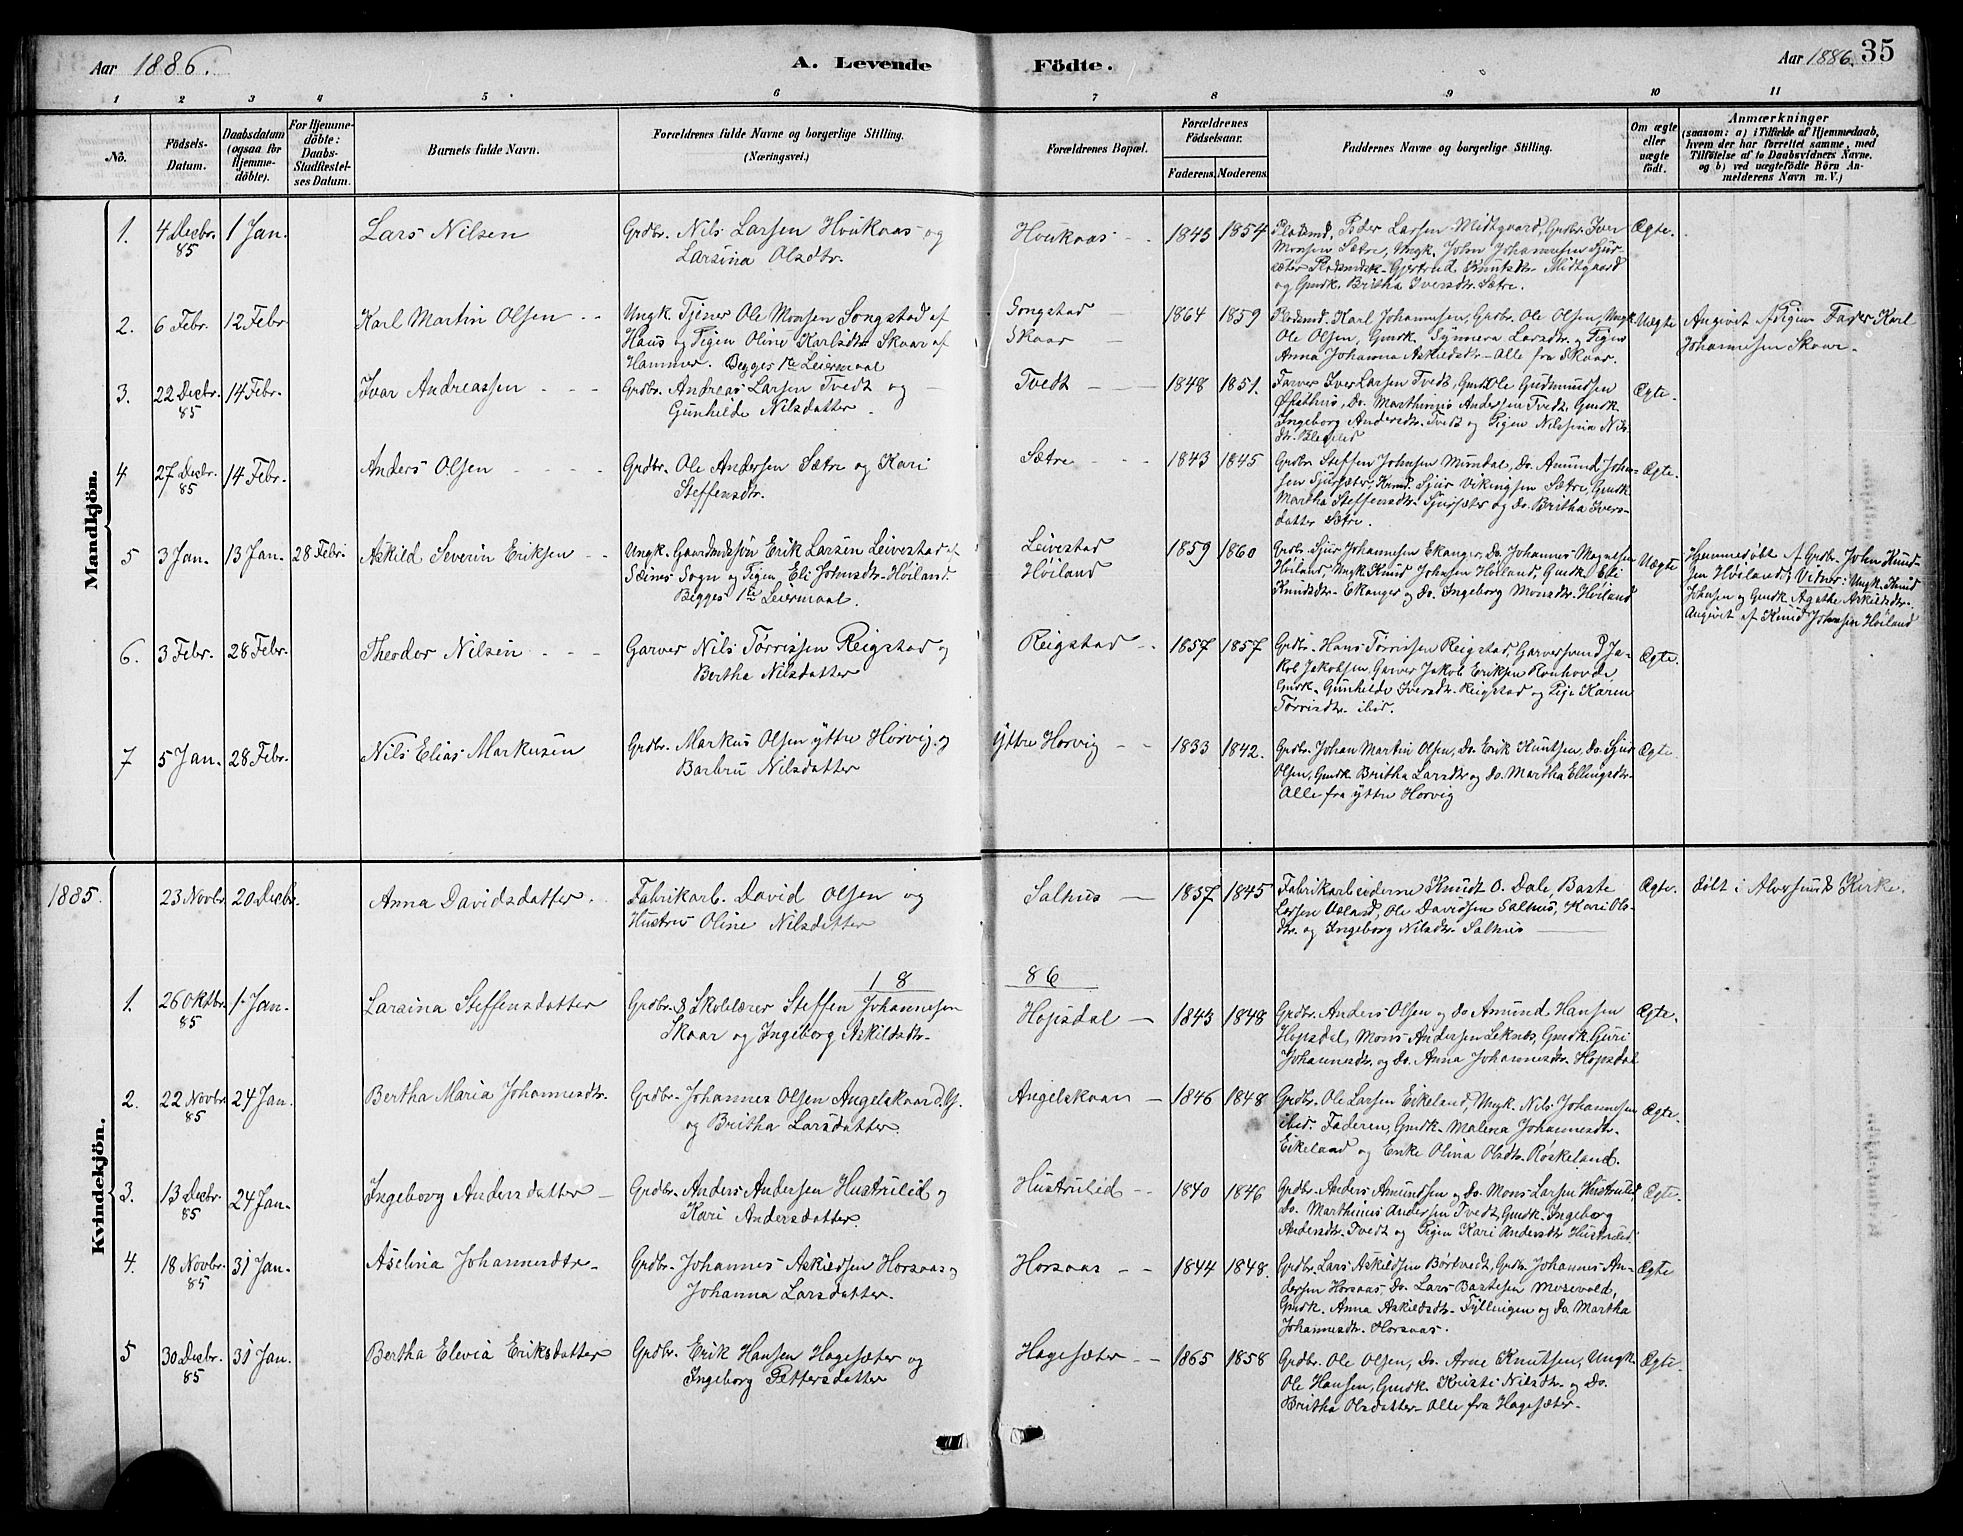 Aar 1886.
A. Levende Födte.
Aar 1886. 35
1 2 3 4 5 6 7 8 9 10 11
No.
Födsels-
Datum.
Daabsdatum
(ogsaa for
Hjemme-
döbte).
For Hjemme-
döbte:
Daabs-
Stadfæstel-
ses Datum.
Barnets fulde Navn.
Forældrenes fulde Navne og borgerlige Stilling.
(Næringsvei.)
Forældrenes Bopæl.
Forældrenes
Födselsaar.
Faderens. Moderens.
Faddernes Navne og borgerlige Stilling.
Om ægte
eller
uægte
födt.
Anmærkninger
(saasom: a) i Tilfælde af Hjemmedaab,
hvem der har forrettet samme, med
Tilföielse af to Daabsvidners Navne.
og b) ved uægtefödte Börn An-
melderens Navn m. V.)
Mandkjön.
1. 4 Decbr. 85 1 Jan. Lars Nilsen
Grdbr. Nils Larsen Houkaas og
Larsina Olsdtr.
Houkaas - 1843 1854
Peder Larsen Midtgaard, Grdbr. Iver
Monsen Sætre, Ungk. John Johannesen Sjur-
sæter Gjertrud Knutsdtr. Midtgaard
og Gmdk. Britha Iversdtr. Sætre.
Ægte.
2. 6 Febr. 12 Febr Karl Martin Olsen - -
Ungk. Tjener Ole Monsen Songstad af
Haus og Pigen Oline Karlsdtr. Skaar af
Hammer. Begges 1te Leiermaal
Songstad -
Skaar - 1864 1859
Karl Johannesen, Grdbr. Ole Olsen, Ungk.
Ole Olsen, Gmdk. Synneva Larsdtr. og Pigen
Anna Johanna Askildsdtr. - Alle fra Skaar.
Uægte
Angivet af Pigens Fader Karl
Johannesen Skaar.
3. 22 Decbr. 85 14 Febr. Ivar Andreassen - - -
Grdbr. Andreas Larsen Tvedt og -
Gunhilde Nilsdatter.
Tvedt - 1848 1851.
Farver Iver Larsen Tvedt, Ole Gudmundsen
Do. Marthinus Andersen Tvedt, Gmdk.
Ingeborg Andersdtr. Tvedt og Pigen Nilsina Nils-
dtr.
Ægte.
4 27 Decbr. 85 14 Febr. Anders Olsen - - - -
Grdbr. Ole Andersen Sætre og Kari
Steffensdtr.
Sætre - - 1843 1845
Grdbr. Steffen Johnsen Mundal, Do. Amund John-
sen Sjursæter, Sjur Vikingsen Sætre, Gmdk.
Martha Steffensdtr. Sjursæter og do. Britha Ivers-
datter Sætre.
Ægte.
5 3 Jan. 13 Jan. 28 Febr. Askild Severin Eriksen - -
Ungk. Gaardmdssøn Erik Larsen Leivestad af
Sæims Sogn og Pigen Eli Johnsdtr. Höiland.
Begges 1te Leiermaal.
Leivestad
Höiland 1859 1860
Grdbr. Sjur Johannesen Ekanger, Do. Johannes Magnesen
Höiland, Ungk. Knud Johnsen Höiland, Gmdk. Eli
Knudsdtr. Ekanger og Do. Ingeborg Monsdtr. Höiland
Uægte
Hjemmedöbt af Grdbr. John Knud-
sen Höiland; Vidner: Ungk. Knud
Johnsen og Gmdk. Agathe Askildsdtr.
Angivet af Knud Johnsen Höiland
6. 3 Febr. 28 Febr. Theodor Nilsen - - -
Garver Nils Tørrissen Reigstad og
Bertha Nilsdatter
Reigstad - 1857 1857
Grdbr. Hans Tørrissen Reigstad, Garversvend Ja-
kob Jakobsen, Garver Jakob Eriksen
Gmdk. Gunhilde Iversdtr. Reigstad og Pige Karen
Tørrisdtr. ibid.
Ægte.
7 5 Jan. 28 Febr. Nils Elias Markusen
Grdbr. Markus Olsen yttre Horvig og
Barbru Nilsdatter
Yttre Horvig - - 1833 1842.
Grdbr. Johan Martin Olsen, Do. Erik Knutsen, Do. Sjur
Olsen, Gmdk. Britha Larsdtr. og Do. Martha Ellingsdtr.
Alle fra yttre Horvig
Ægte
Kvindekjön.
1885. 23 Novbr. 20 Decbr. Anna Davidsdatter.
Fabrikarb. David Olsen og
Hustru Oline Nilsdatter
Salhus - 1837 1845
Fabrikarbeiderne Knudt O. Dale, Baste
Larsen, Ole Davidsen Salhus, Kari Ols-
dtr. og Ingeborg Nilsdtr. Salhus
Ægte.
døbt i Alversunds Kirke.
1 8 8 6
1. 26 Oktbr. 85 1. Jan. Larsina Steffensdatter
Grdbr. & Skolelærer Steffen Johannesen
Skaar og Ingeborg Askildsdtr.
Hopsdal - 1843 1848
Grdbr. Anders Olsen og do Amund Hansen
Hopsdal, Mons Andersen Leknes, Gmdk. Guri
Johannesdtr. og Do. Anna Johannesdtr. Hopsdal
Ægte.
2. 22 Novbr. 85 24 Jan. Bertha Maria Johannesdtr.
Grdbr. Johannes Olsen Angelskaar
og Britha Larsdatter
Angelskaar - 1846 1848
Grdbr. Ole Larsen Eikeland, Ungk. Nils Johannesen
ibid. Faderen, Gmdk. Malena Johannesdtr.
Eikeland og Enke Olina Olsdtr. Röskeland.
Ægte.
3. 13 Decbr. 85 24 Jan. Ingeborg Andersdatter -
Grdbr. Anders Andersen Hustrulid og
Kari Andersdatter.
Hustrulid - - 1840 1846
Grdbr. Anders Amundsen og Do. Mons Larsen Hustrulid
Do. Marthinus Andersen Tvedt, Gmdk. Ingeborg
Andersdtr. Tvedt og Pigen Kari Andersdtr. Hustrulid.
Ægte.
4. 18 Novbr. 85 31 Jan. Aselina Johannesdtr. -
Grdbr. Johannes Askildsen Horsaas og
Johanna Larsdatter.
Horsaas - - 1844 1848.
Grdbr. Lars Askildsen, Grdbr. Johannes An-
dersen Horsaas, Do. Lars Bastesen Mosevold,
Gmdk. Anna Askildsdtr. Fyllingen og Do. Martha
Johannesdtr. Horsaas.
Ægte
5 30 Decbr. 85 31 Jan. Bertha Elevia Eriksdatter
Grdbr. Erik Hansen Hagesæter og
Ingeborg Pettersdatter
Hagesæter - - 1865 1858
Grdbr. Ole Olsen, Do. Arne Knutsen, Ungk.
Ole Hansen, Gmdk. Kristi Nilsdtr. og Do.
Britha Olsdatter - Alle fra Hagesæter.
Ægte